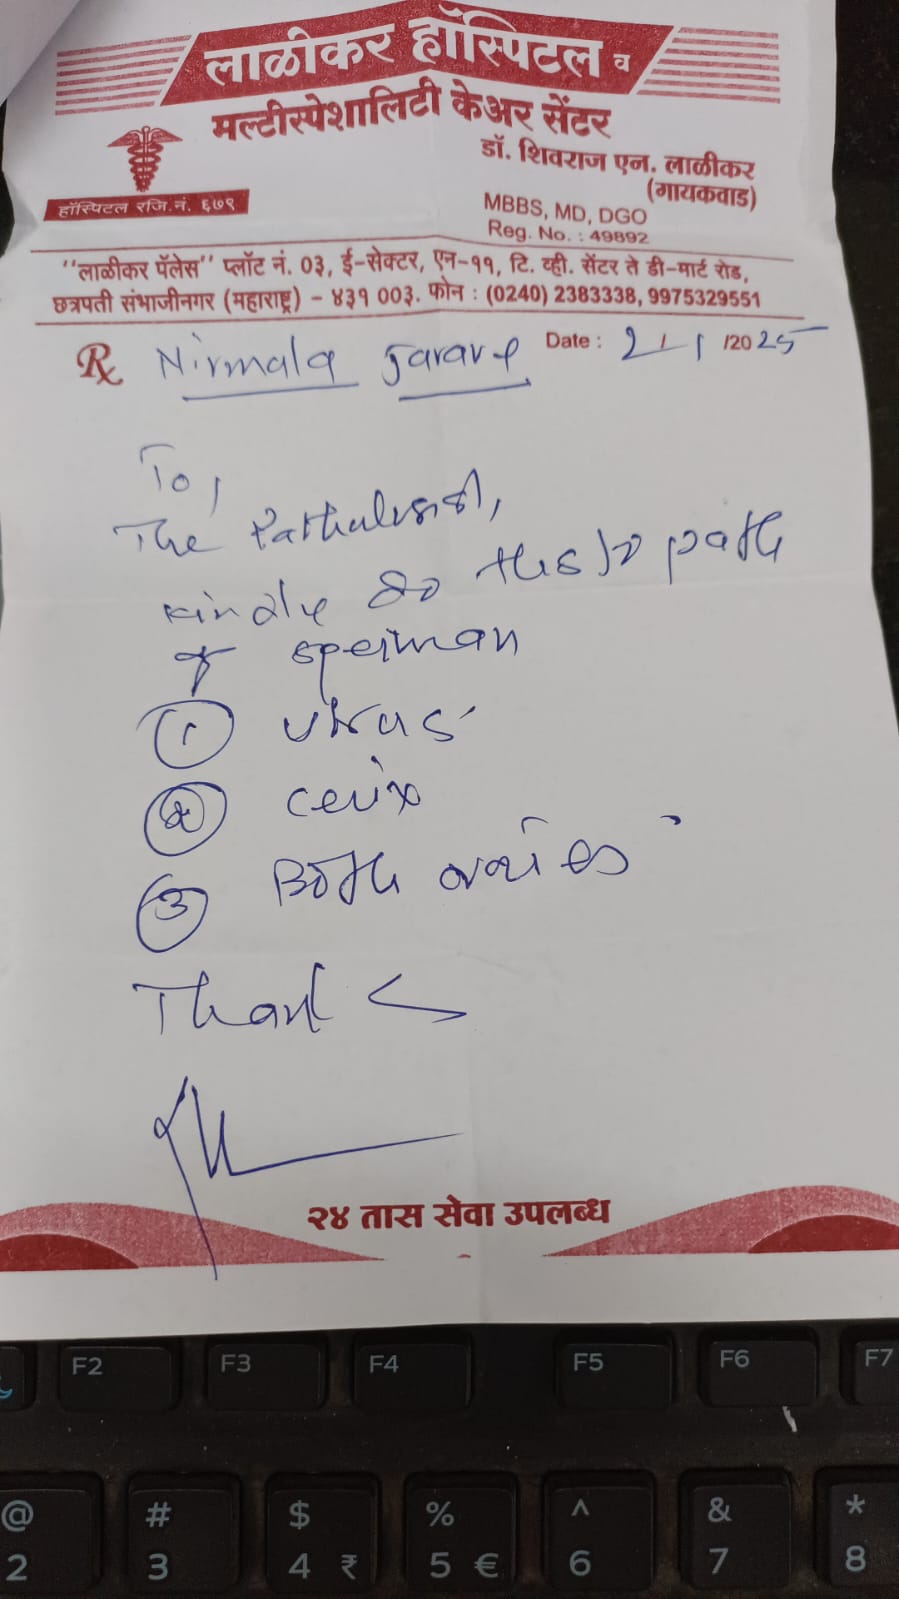 लाळीकर हॉस्पिटल व
मल्टीस्पेशालिटी केअर सेंटर
डॉ. शिवराज एन. लाळीकर
(गायकवाड)
MBBS, MD, DGO
Reg. No. : 49892
हॉस्पिटल रजि.नं. ६७९
"लाळीकर पॅलेस" प्लॉट नं. 03, ई-सेक्टर, एन-११, टि. व्ही. सेंटर ते डी-मार्ट रोड,
छत्रपती संभाजीनगर (महाराष्ट्र) - ४३१ 003. फोन : (0240) 2383338, 9975329551
Rx Nirmala Date : 2/1/2025
To,
The
kindly do path
of
① 
② cervix
③ Both ovaries
Thanks
२४ तास सेवा उपलब्ध
F2 F3 F4 F5 F6 F7
@ # $ % ^ & *
2 3 4 ₹ 5 € 6 7 8